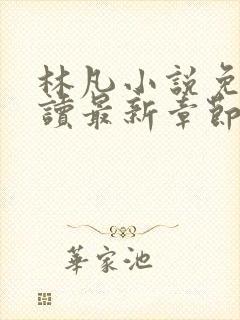 林凡小說免
讀最新章節
華家池